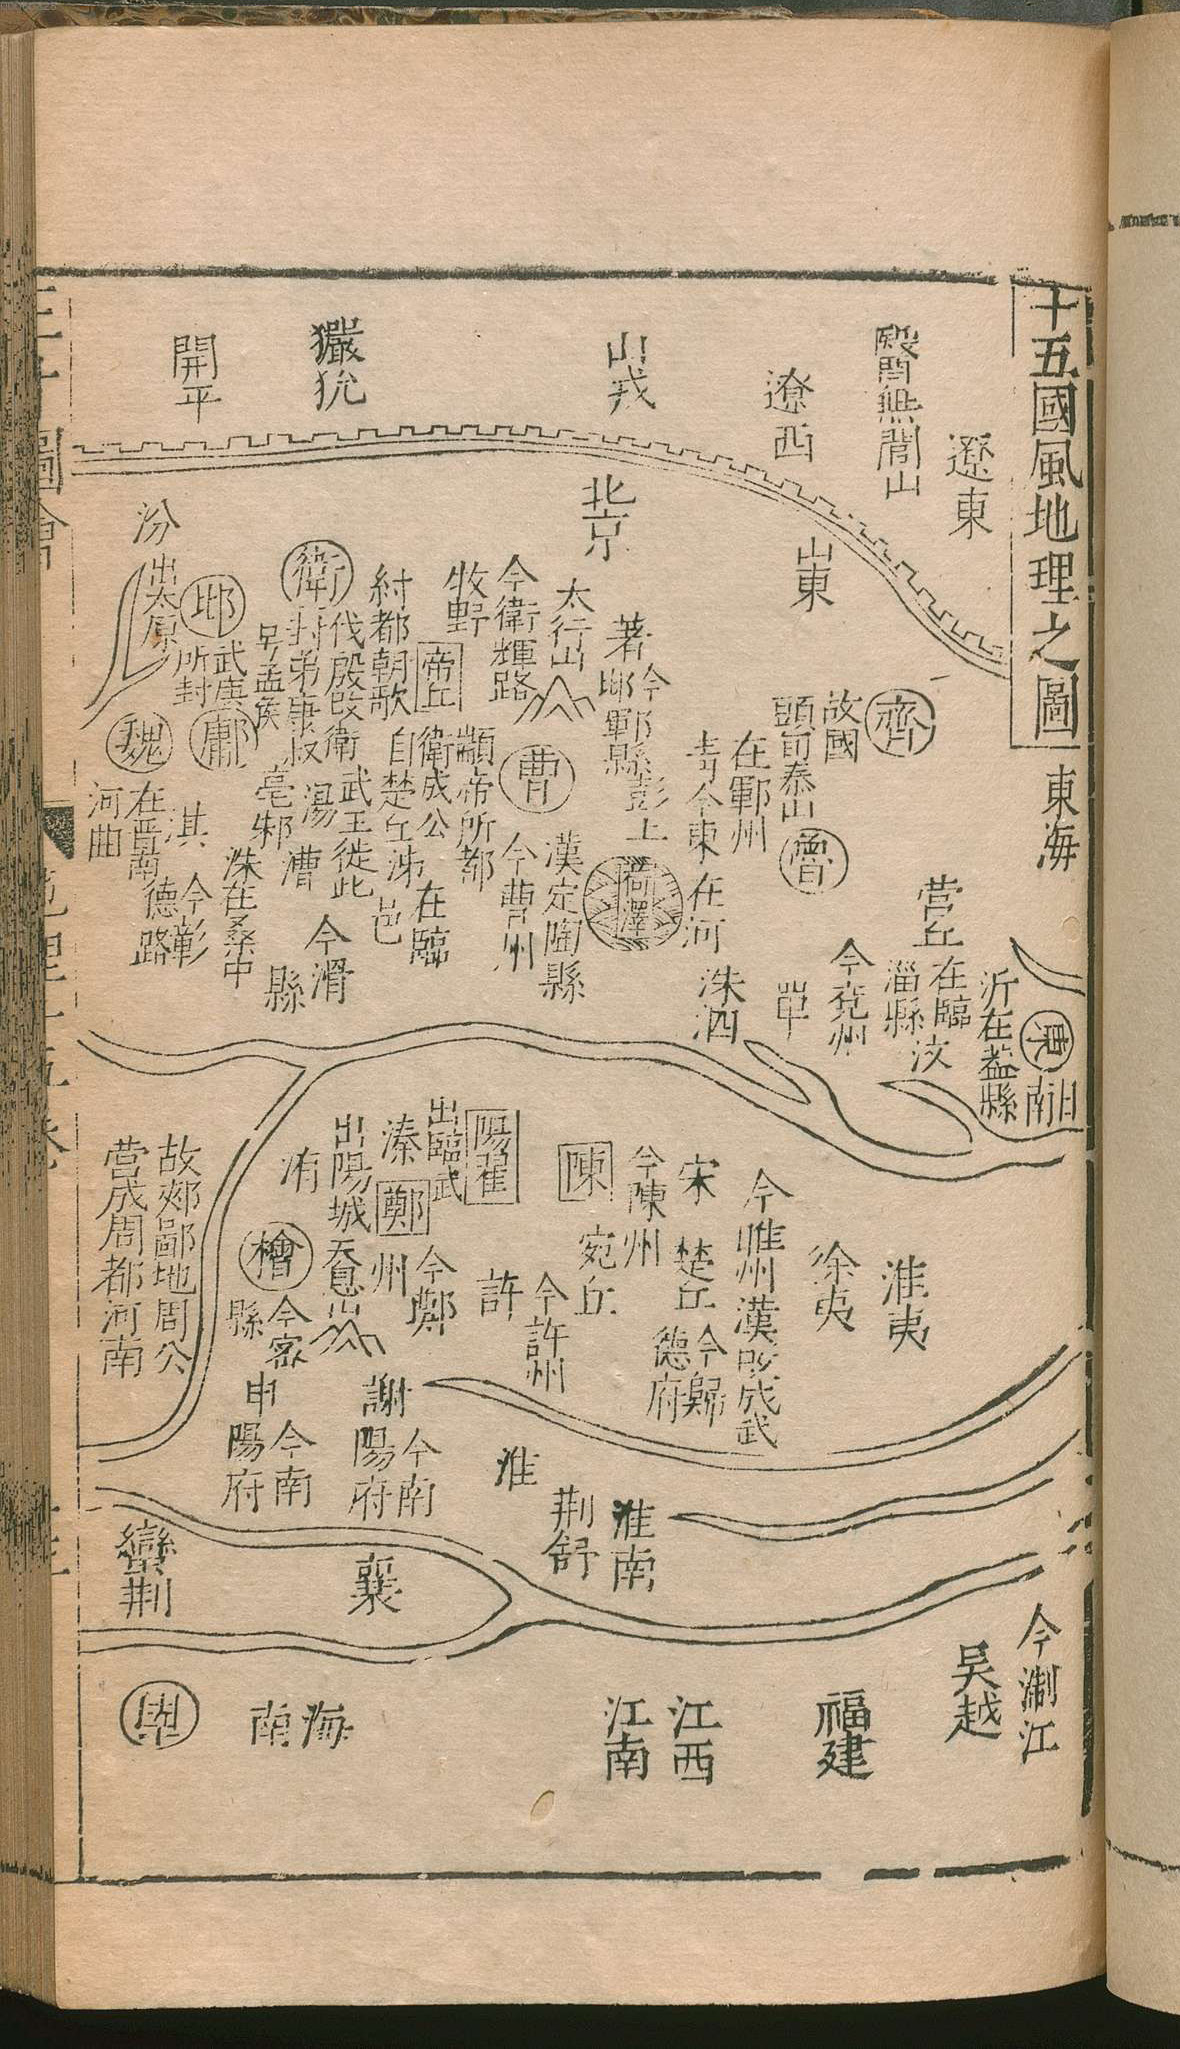 十五國風地理之圖
東海
東
日
南
沂在葢縣
遼東
醫無閭山
遼西
山東
山戎
玁狁
開平
北京
齊
故國
頭可泰山
魯
營丘
在臨
淄縣
汶
今兗州
單
在鄆州
今東
在河
洙泗
著
今鄆縣
菏澤
太行山
曹
漢定陶縣
今曹州
今衛輝路
牧野
帝丘
顓帝所都
衛成公
自楚丘
在臨
邑
紂都朝歌
衛
伐殷
封弟康叔
武王徙此
漕
今滑
縣
邶
武庚
所封
鄘
洙在桑中
淇
今彰
德路
汾
出太原
魏
在晋南
河曲
淮夷
徐夷
宋
楚丘
今歸
德府
陳
今陳州
宛丘
許
今許州
陽翟
出臨武
溱
鄭
今鄭
州
洧
出陽城
檜
今密
縣
謝
今南
陽府
申
今南
陽府
故郟鄏地周公
營成周都河南
淮
荆舒
淮南
襄
蠻荆
今淛江
吴越
福建
江西
江南
海
南